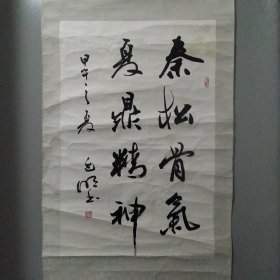 秦松骨氣
夏鼎精神
甲午之夏